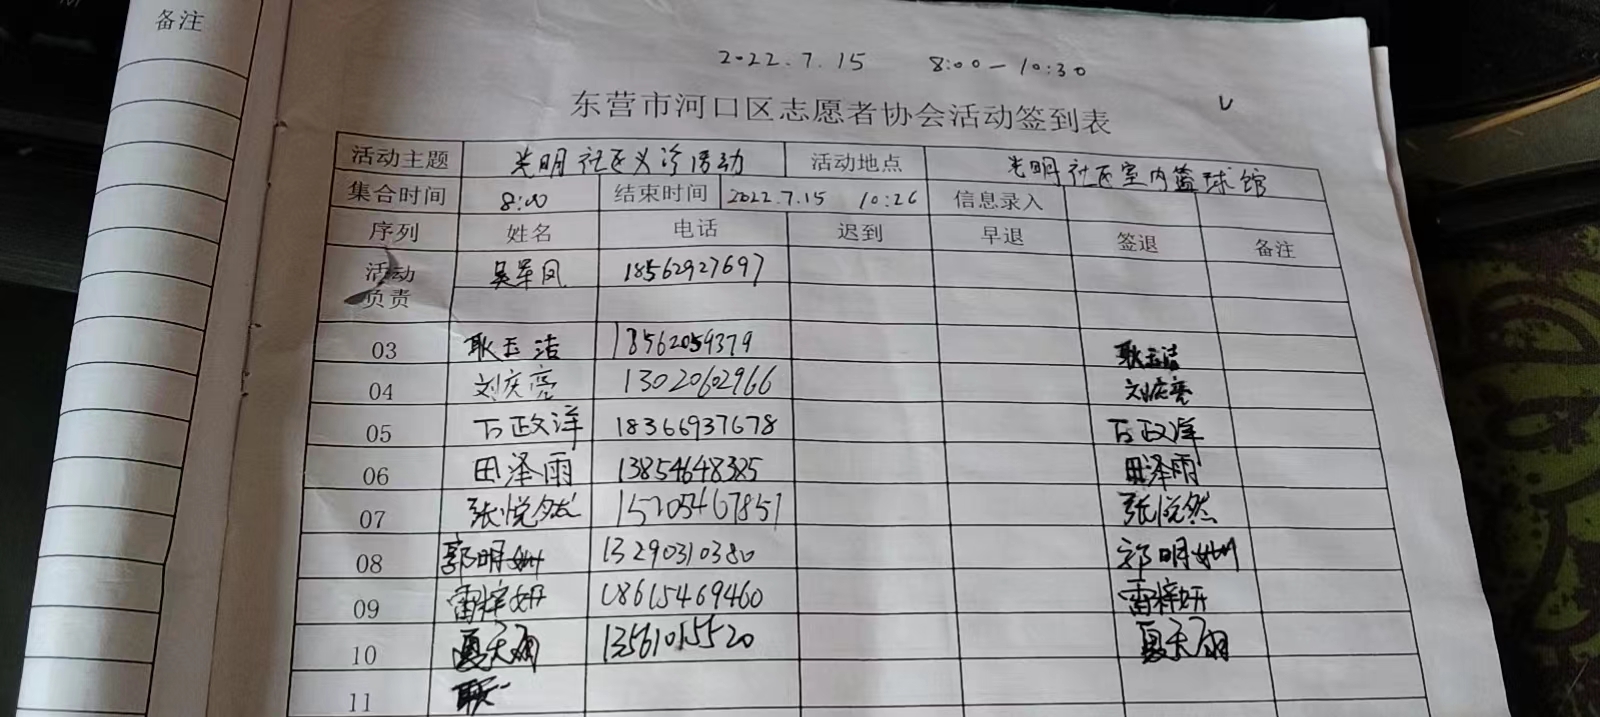 备注
2022.7.15 8:00-10:30
东营市河口区志愿者协会活动签到表
活动主题 光明社区义诊活动 活动地点 光明社区室内篮球馆
集合时间 8:00 结束时间 2022.7.15 10:26 信息录入
序列 姓名 电话 迟到 早退 签退 备注
活动负责 吴军凤 18562927697
03 耿玉洁 18562059379 耿玉洁
04 刘庆亮 13020602966 刘庆亮
05 万政洋 18366937678 万政洋
06 田泽雨 13854648325 田泽雨
07 张悦然 15205467851 张悦然
08 郭明姗 13290310380 郭明姗
09 雷梓妍 18615469460 雷梓妍
10 夏天雨 13561015520 夏天雨
11